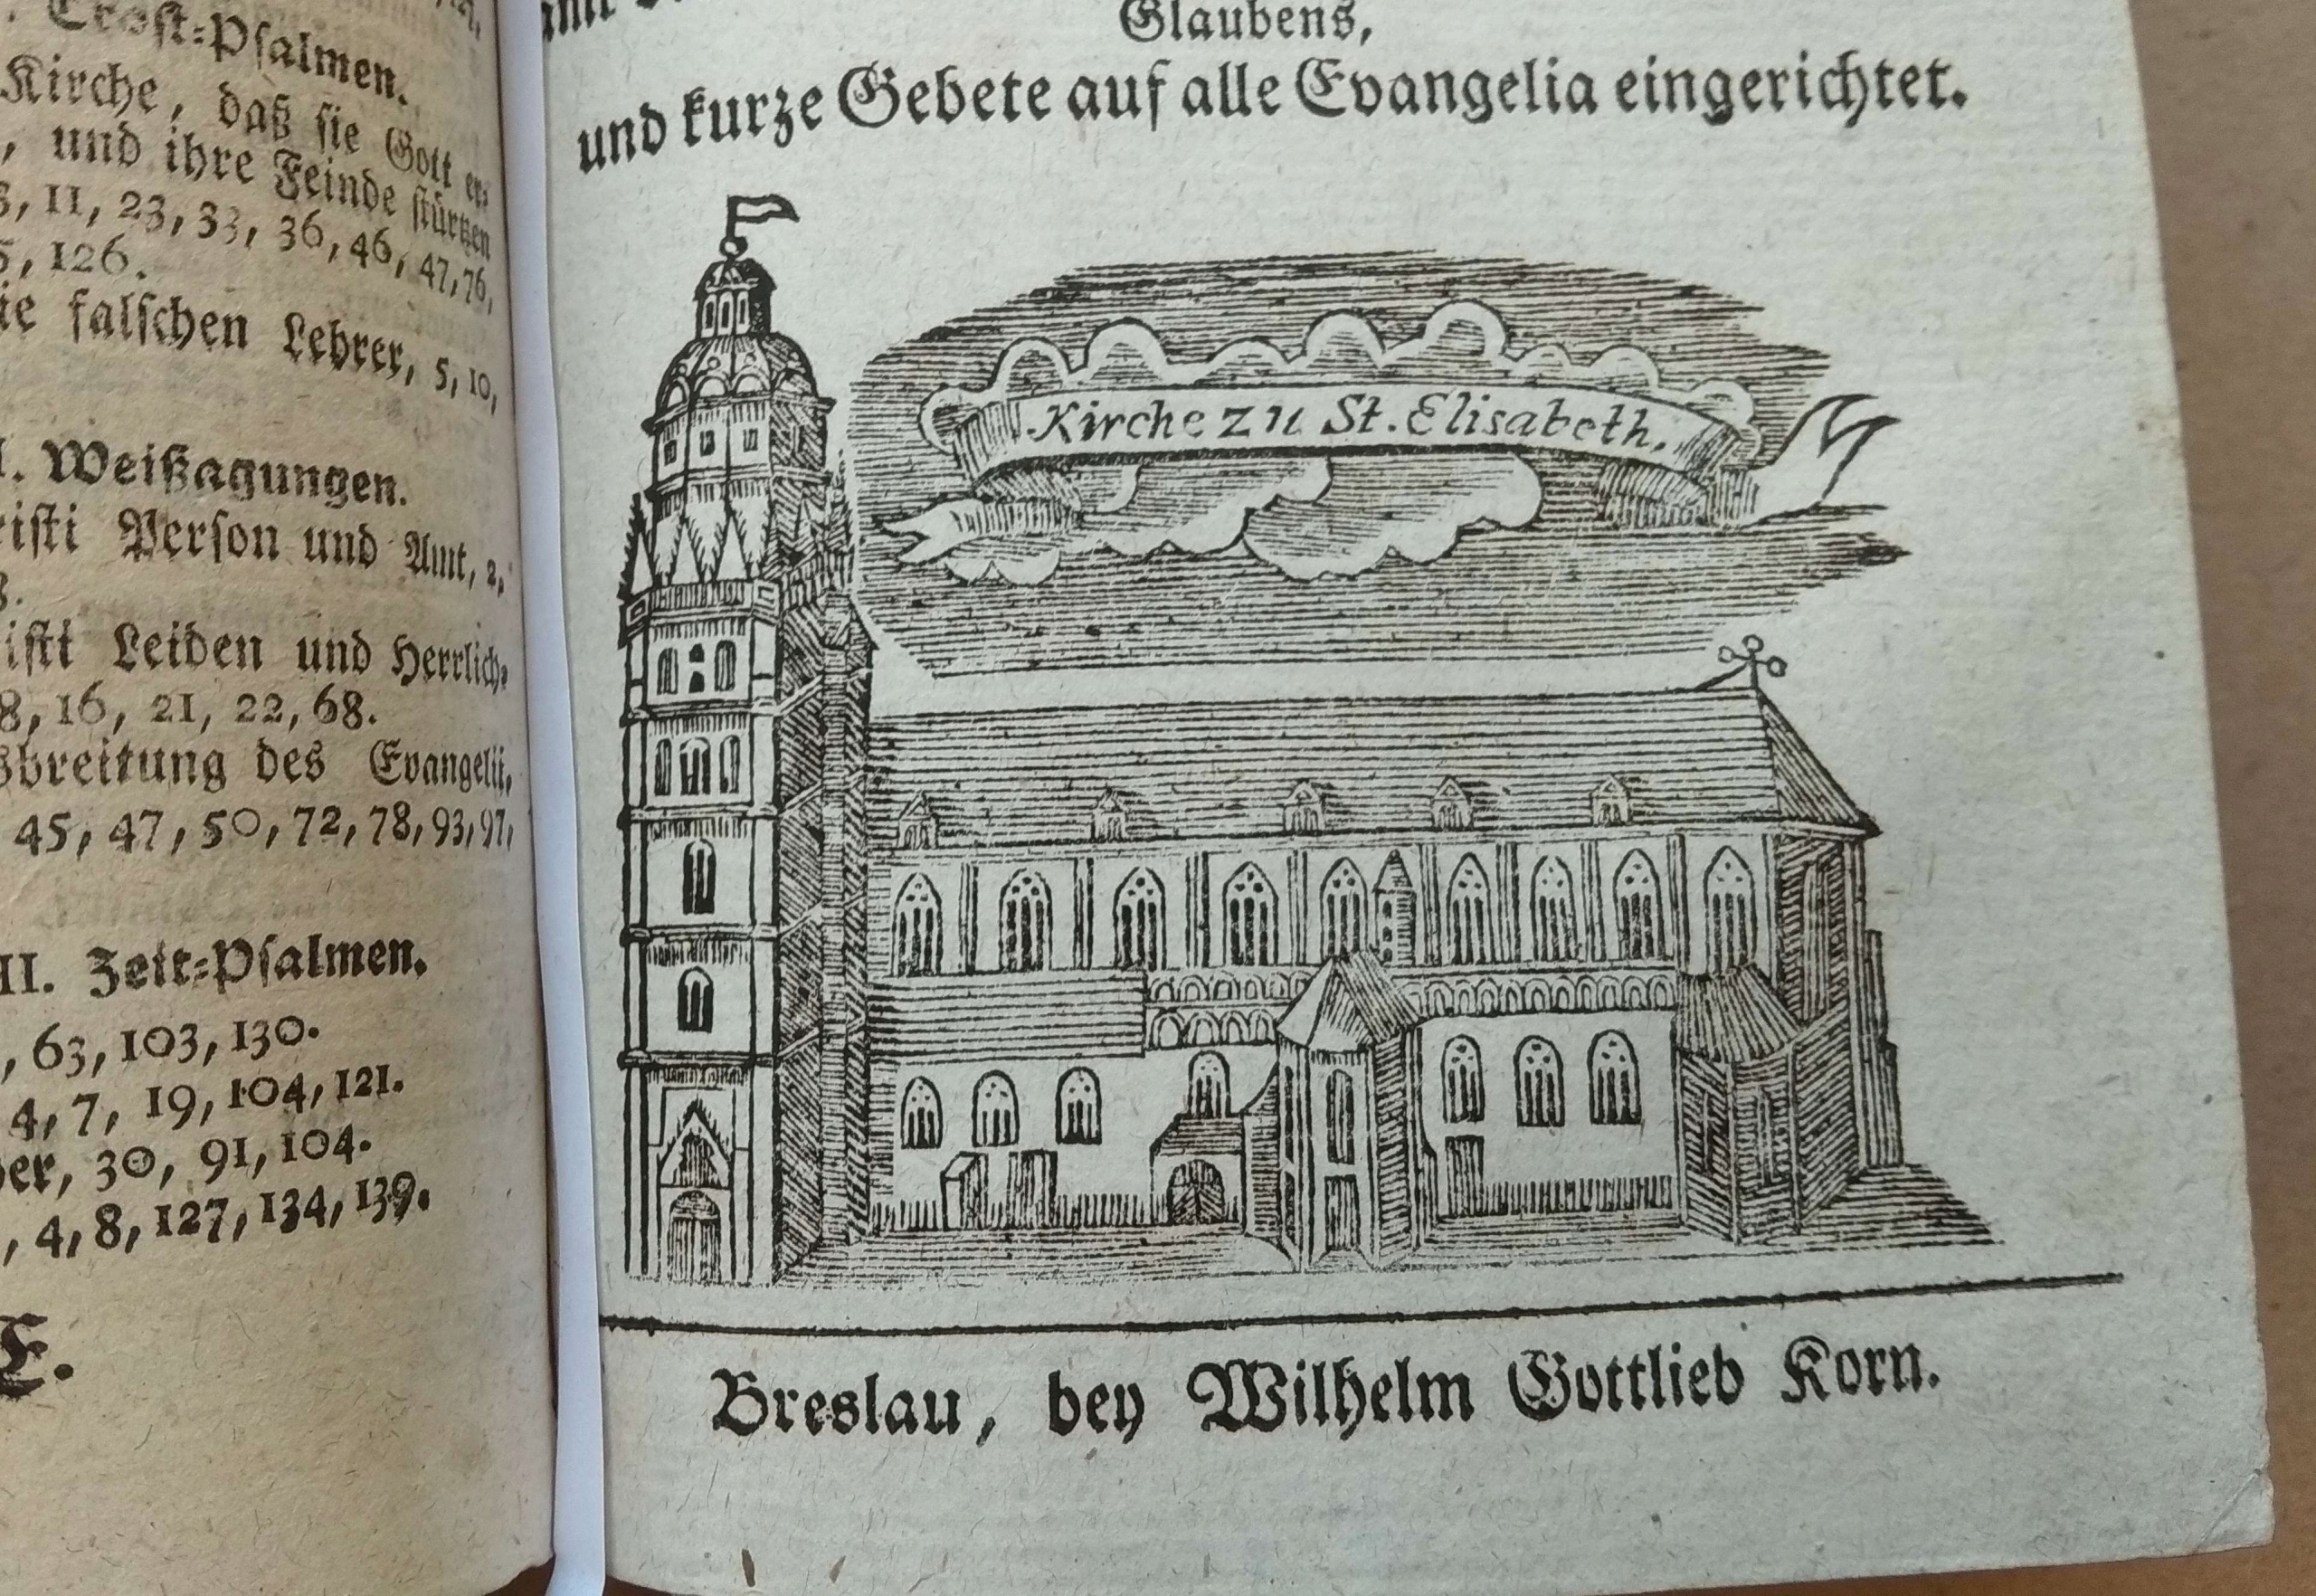 Trost=Psalmen.
Kirche, daß sie Gott er=
, und ihre Feinde stürtzen
3, 11, 23, 33, 36, 46, 47, 76,
5, 126.
ie falschen Lehrer, 5, 10,
I. Weißagungen.
risti Person und Amt, 2,
8.
isti Leiden und Herrlich=
8, 16, 21, 22, 68.
sbreitung des Evangelii,
45, 47, 50, 72, 78, 93, 97,
II. Zeit=Psalmen.
, 63, 103, 130.
4, 7, 19, 104, 121.
er, 30, 91, 104.
, 4, 8, 127, 134, 139.
E.
Glaubens,
und kurze Gebete auf alle Evangelia eingerichtet.
Kirche zu St. Elisabeth.
Breslau, bey Wilhelm Gottlieb Korn.